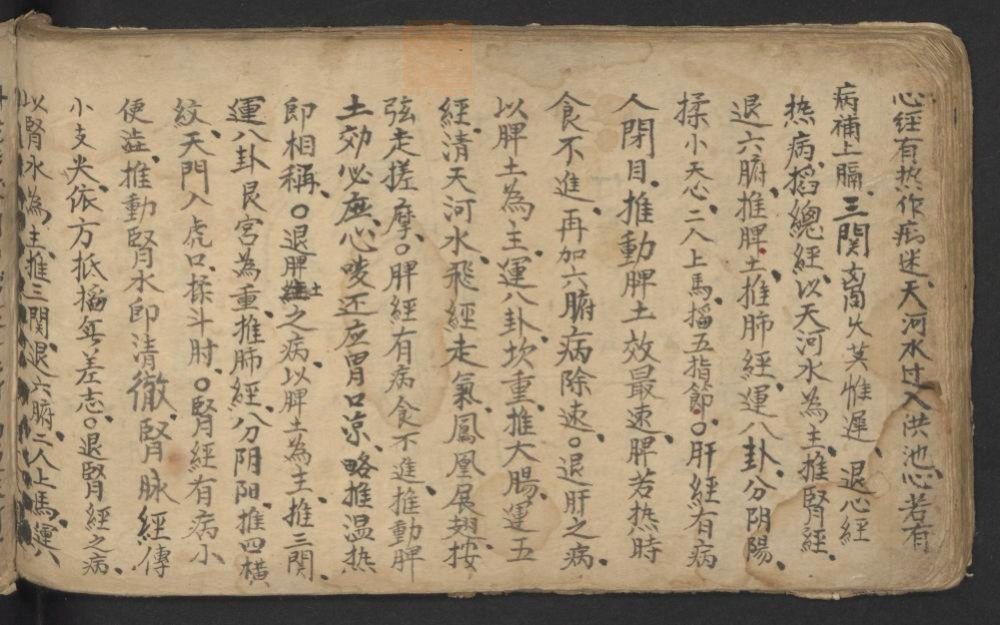 心经有热作痴迷、天河水过入洪池、心若有
病補上膈、三関离火莫惟遲、退心經
热病、掐總經、以天河水為主、推腎經、
退六腑、推脾土、推肺經、運八卦、分阴陽、
揉小天心、二人上馬、掐五指節。肝經有病
人閉目、推動脾土效最速、脾若热時
食不進、再加六腑病除速。退肝之病、
以脾土為主、運八卦、坎重、推大腸、運五
經、清天河水、飛經走氣、鳳凰展翅、按
弦走搓摩。脾經有病食不進、推動脾
土効必應、心唛还应胃口凉、略推温热
即相稱。退脾土之病、以脾土為主、推三関、
運八卦艮宫為重、推肺經、分阴阳、推四横
紋、天門入虎口、揉斗肘。腎經有病小
便澁、推動腎水即清徹、腎脉經傳
小支尖、依方抵掐無差志。退腎經之病、
以腎水為主、推三関、退六腑、二人上馬、運八